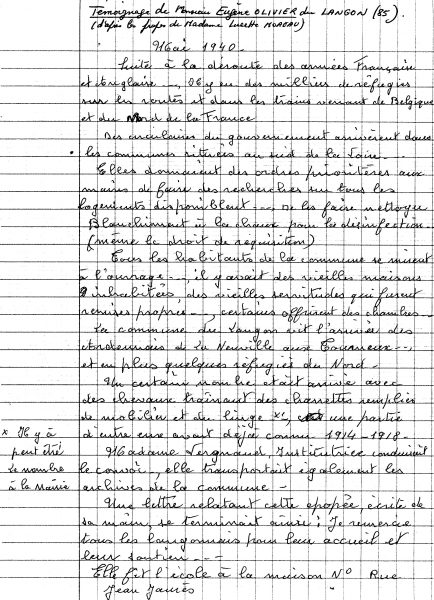 Témoignage de Monsieur Eugène OLIVIER du LANGON (85).
(d'après les propos de Madame Lucette MOREAU)
Mai 1940.
Suite à la déroute des armées Française
et Anglaise --, Il y eu des milliers de réfugiés
sur les routes et dans les trains venant de Belgique
et du Nord de la France
Des circulaires du gouvernement arrivèrent dans
les communes situées au sud de la Loire...
Elles donnaient des ordres prioritères aux
maires de faire des recherches sur tous les
logements disponiblent --, de les faire nettoyer
Blanchiment à la chaux pour la désinfection.
(même le droit de réquisition)
Tous les habitants de la commune se mirent
à l'ouvrage --, il y avait des vieilles maisons
inhabitées, des vieilles servitudes qui furent
remises propres --, certains offrirent des chambres --
La commune du Langon vit l'arrivée des
Ardennais de La Neuville aux Tourneurs --
et en plus quelques réfugiés du Nord -
Un certain nombre était arrivé avec
des chevaux traînant des charrettes remplies
de mobilier et du linge x, une partie
d'entre eux avant déjà connu 1914-1918 -
x Il y à
peut être
le nombre
à la mairie
Madame Vergnaud, Institutrice conduisait
le convoi, elle transportait également les
archives de la commune -
Une lettre relatant cette épopée, écrite de
sa main, se terminait ainsi ; Je remercie
tous les langonnais pour leur accueil et
leur soutien ---
Elle fit l'école à la maison N° Rue
Jean Jaurès